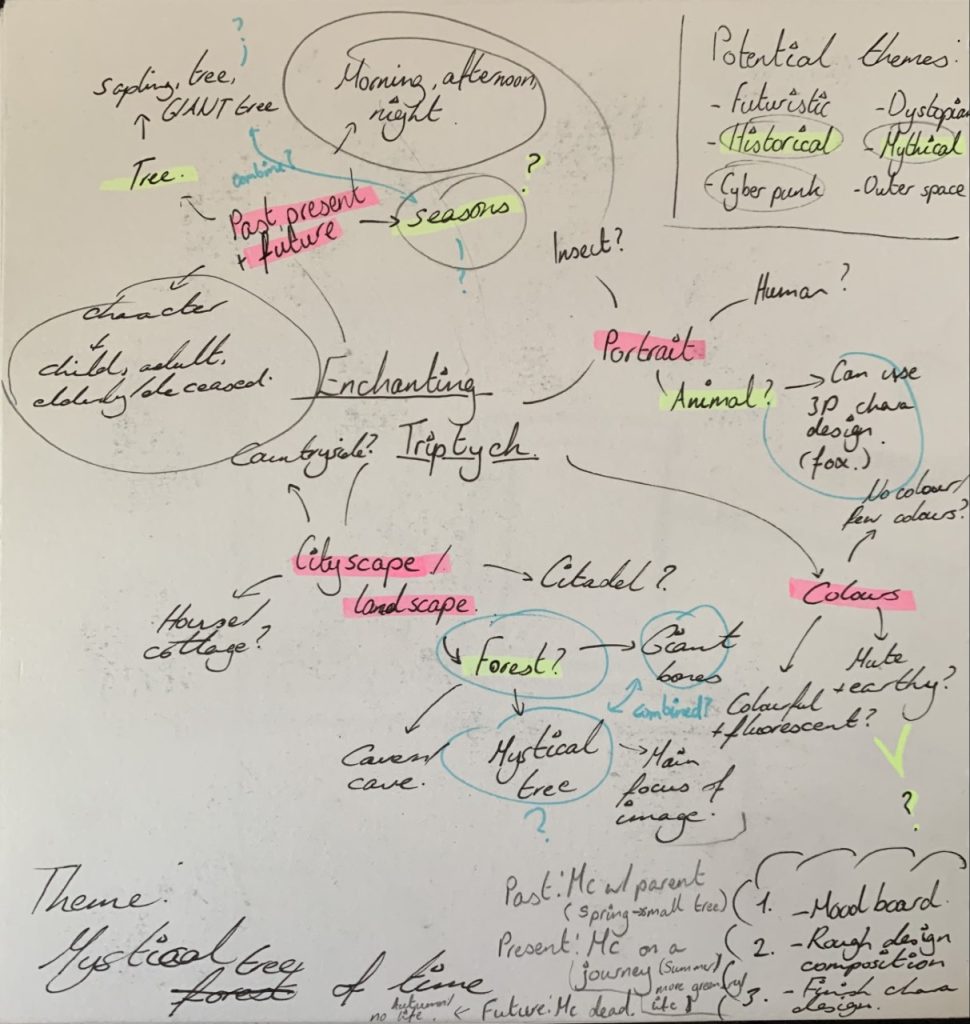 Potential themes:
- Futuristic
- Dystopian
- Historical
- Mythical
- Cyber punk
- Outer space
?
sapling, tree,
GIANT tree
Tree.
combine?
Morning, afternoon,
night.
Past, present
+ future
seasons
?
?
character
child, adult,
elderly/deceased.
Enchanting
Triptych.
Insect?
Human?
Portrait
Animal?
Can use
3D chara
design.
(fox.)
Countryside?
Cityscape /
landscape.
House/
cottage?
Citadel?
Forest?
Giant
bones
combined?
Cavern/
cave.
Mystical
tree
?
Main
focus of
image.
No colour/
few colours?
Colours
Colourful
+ fluorescent?
Mute
+ earthy?
?
Theme:
Mystical tree
forest of time
Past: Mc w/ parent
(Spring - small tree)
Present: Mc on a
journey (Summer/
more green
life)
Future: Mc dead.
Autumn/
no life.
1. - Mood board.
2. - Rough design
composition
3. - Finish chara
design.